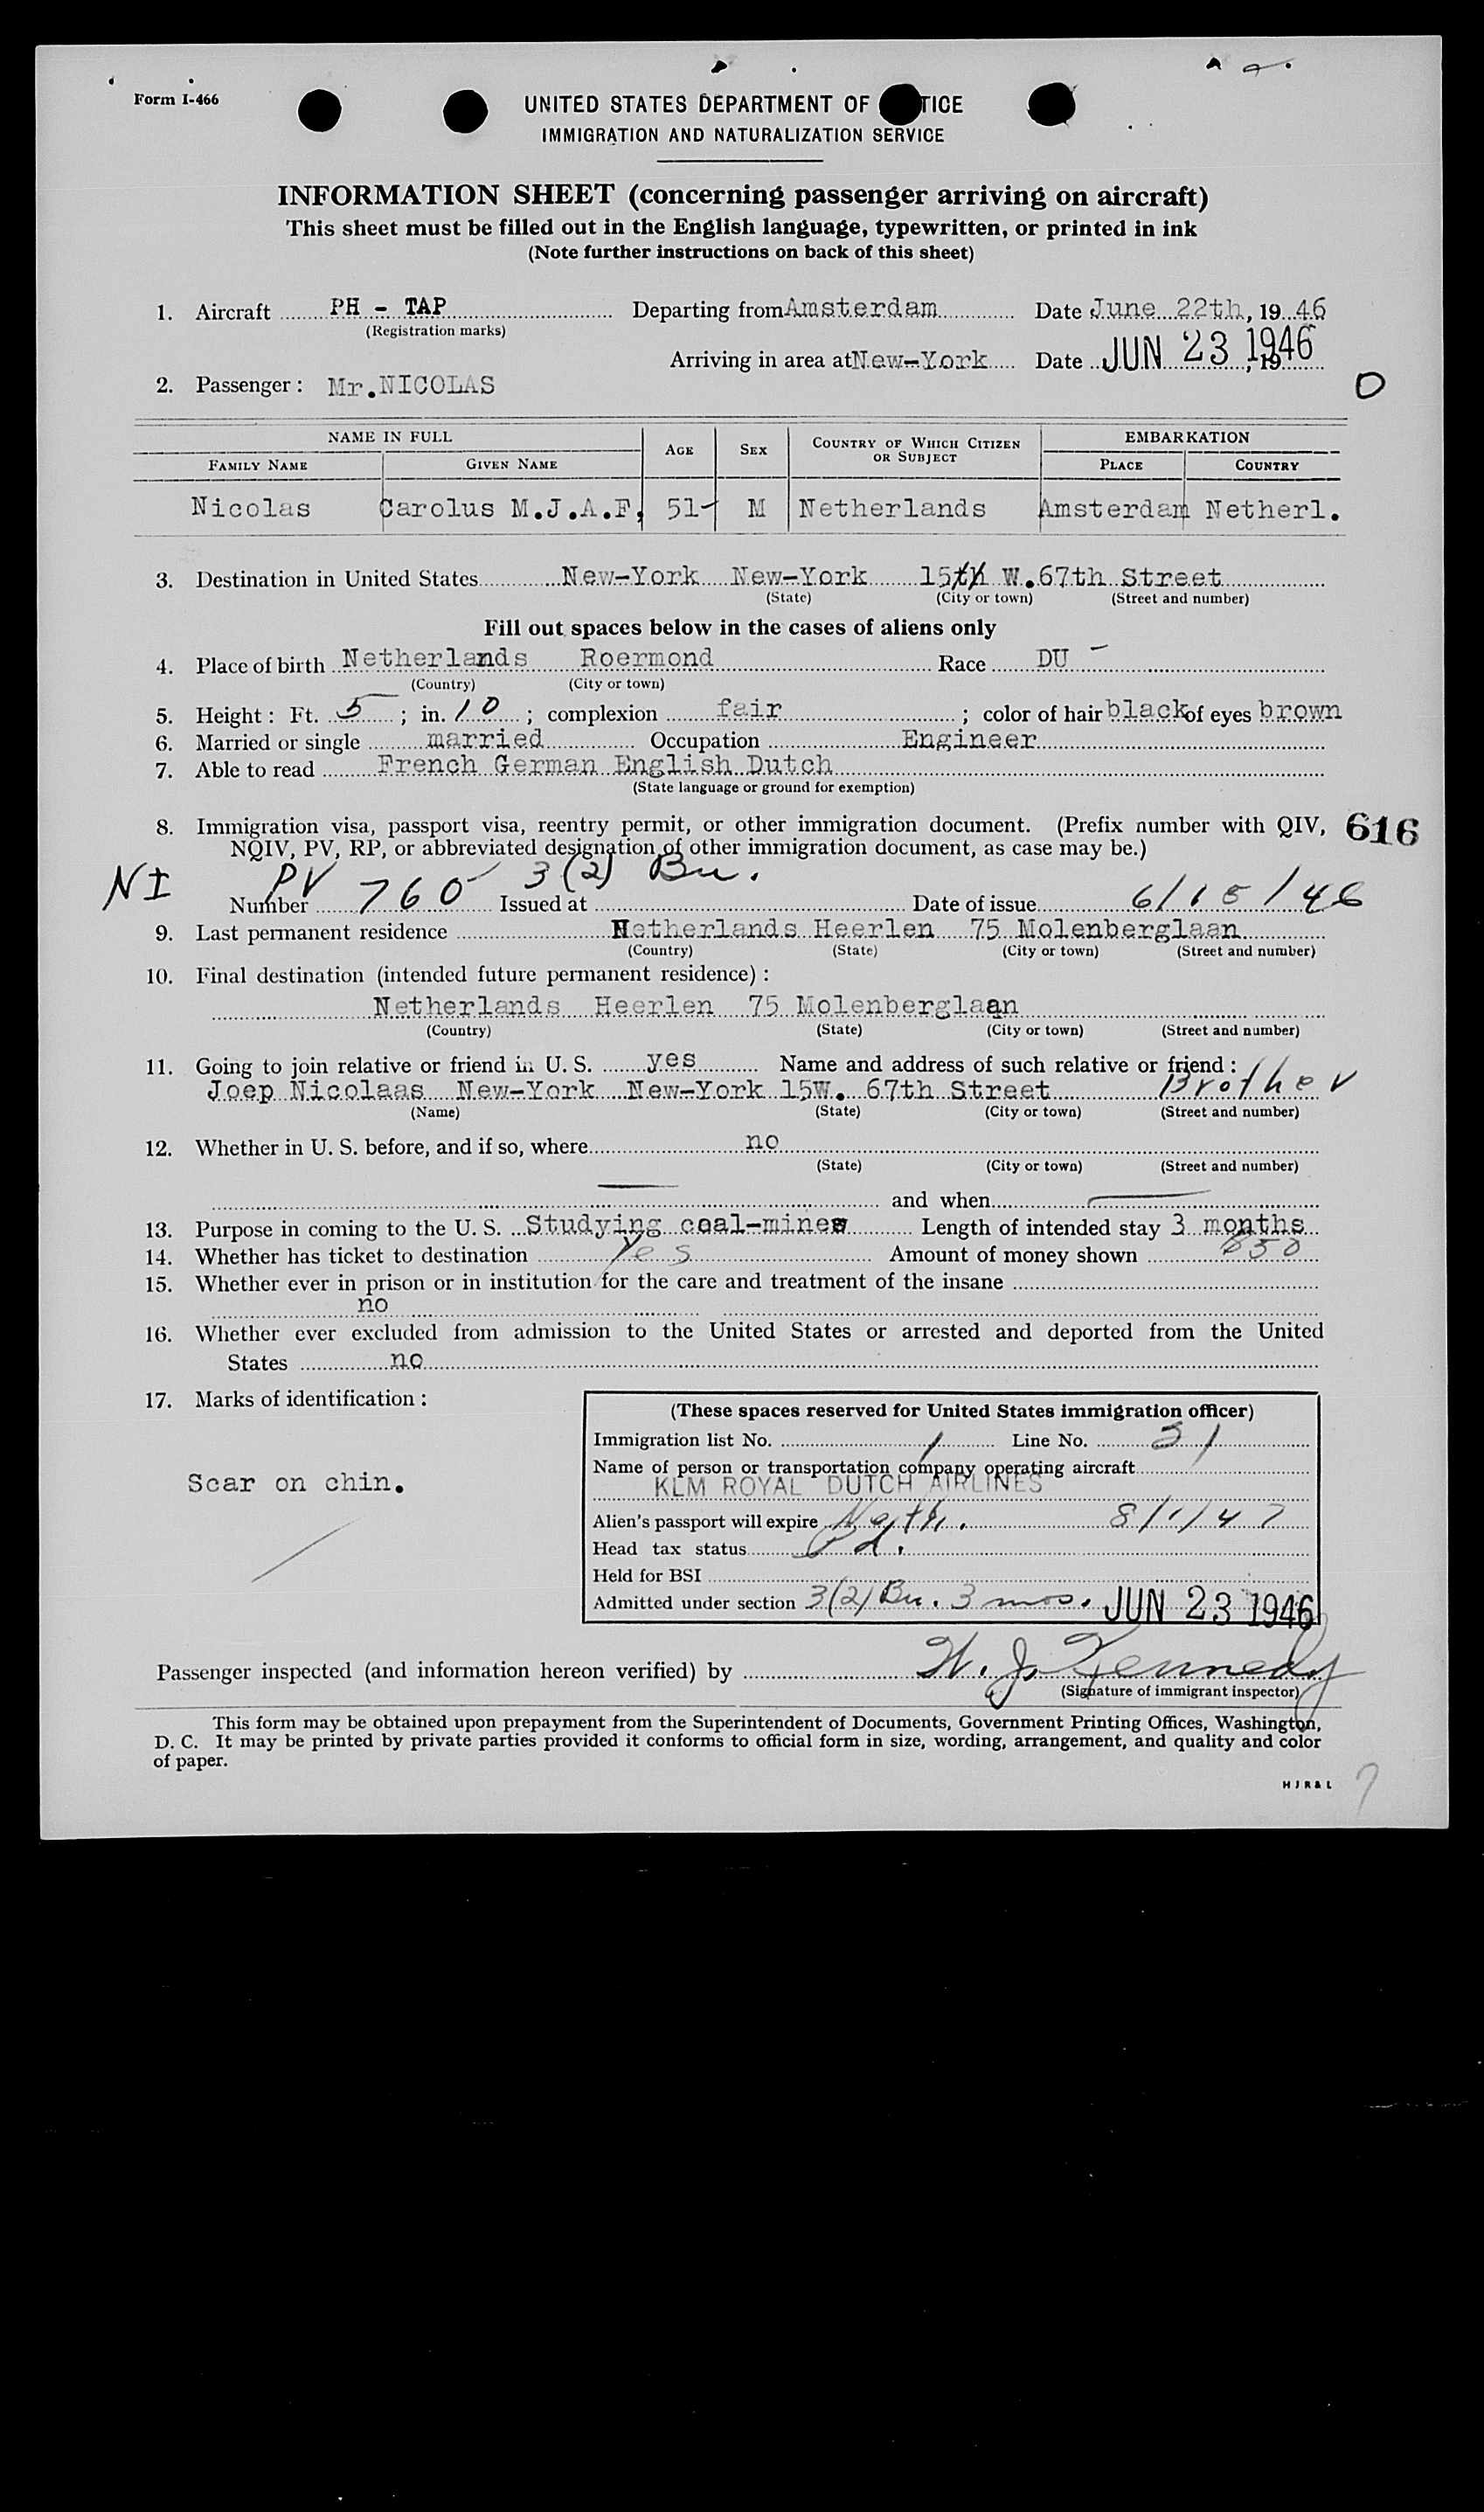 Form I-466
UNITED STATES DEPARTMENT OF TICE
IMMIGRATION AND NATURALIZATION SERVICE
INFORMATION SHEET (concerning passenger arriving on aircraft)
This sheet must be filled out in the English language, typewritten, or printed in ink
(Note further instructions on back of this sheet)
1. Aircraft PH - TAP Departing from Amsterdam Date June 22th, 19 46
(Registration marks)
Arriving in area at New-York Date JUN 23 1946, 19
2. Passenger : Mr.NICOLAS
O
NAME IN FULL AGE SEX COUNTRY OF WHICH CITIZEN OR SUBJECT EMBARKATION
FAMILY NAME GIVEN NAME PLACE COUNTRY
Nicolas Carolus M.J.A.F. 51- M Netherlands Amsterdam Netherl.
3. Destination in United States New-York New-York 15th W.67th Street
(State) (City or town) (Street and number)
Fill out spaces below in the cases of aliens only
4. Place of birth Netherlands Roermond Race DU -
(Country) (City or town)
5. Height : Ft. 5 ; in. 10 ; complexion fair ; color of hair black of eyes brown
6. Married or single married Occupation Engineer
7. Able to read French German English Dutch
(State language or ground for exemption)
8. Immigration visa, passport visa, reentry permit, or other immigration document. (Prefix number with QIV, 616
NQIV, PV, RP, or abbreviated designation of other immigration document, as case may be.)
NI PV 3(2) Bu.
Number 760 Issued at Date of issue 6/15/46
9. Last permanent residence Netherlands Heerlen 75 Molenberglaan
(Country) (State) (City or town) (Street and number)
10. Final destination (intended future permanent residence) :
Netherlands Heerlen 75 Molenberglaan
(Country) (State) (City or town) (Street and number)
11. Going to join relative or friend in U. S. yes Name and address of such relative or friend :
Joep Nicolaas New-York New-York 15W. 67th Street Brother
(Name) (State) (City or town) (Street and number)
12. Whether in U. S. before, and if so, where no
(State) (City or town) (Street and number)
and when
13. Purpose in coming to the U. S. Studying coal-mines Length of intended stay 3 months
14. Whether has ticket to destination Yes Amount of money shown 850
15. Whether ever in prison or in institution for the care and treatment of the insane
no
16. Whether ever excluded from admission to the United States or arrested and deported from the United
States no
17. Marks of identification :
Scar on chin.
(These spaces reserved for United States immigration officer)
Immigration list No. 1 Line No. 31
Name of person or transportation company operating aircraft
KLM ROYAL DUTCH AIRLINES
Alien's passport will expire Neth. 8/1/47
Head tax status Pd.
Held for BSI
Admitted under section 3(2) Bu. 3 mos. JUN 23 1946
Passenger inspected (and information hereon verified) by W. J. Kennedy
(Signature of immigrant inspector)
This form may be obtained upon prepayment from the Superintendent of Documents, Government Printing Offices, Washington,
D. C. It may be printed by private parties provided it conforms to official form in size, wording, arrangement, and quality and color
of paper.
H J R & L
7